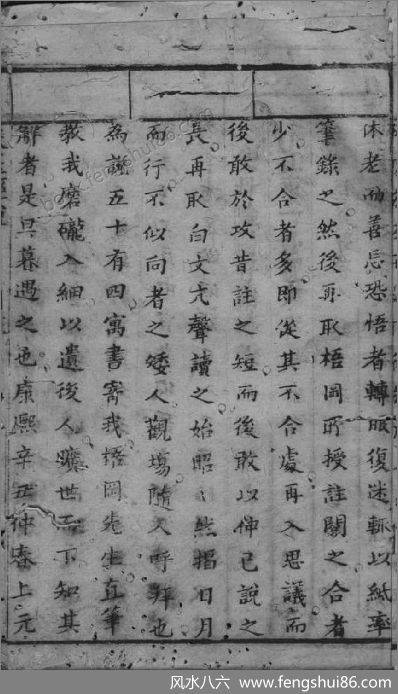 休老而善忘恐悟者轉眼復迷輒以紙率
筆錄之然後再取梧岡所授註闢之合者
少不合者多即從其不合處再入思議而
後敢於攻昔註之短而後敢以伸已說之
長再取白文亢聲讀之始昭〻然揭日月
而行不似向者之矮人觀場隨人呼拜也
為說五十有四寓書寄我梧岡先生直筆
教我磨礲入細以遺後人曠世而下知其
解者是旦暮遇之也康熙辛丑仲春上元
风水八六 www.fengshui86.com